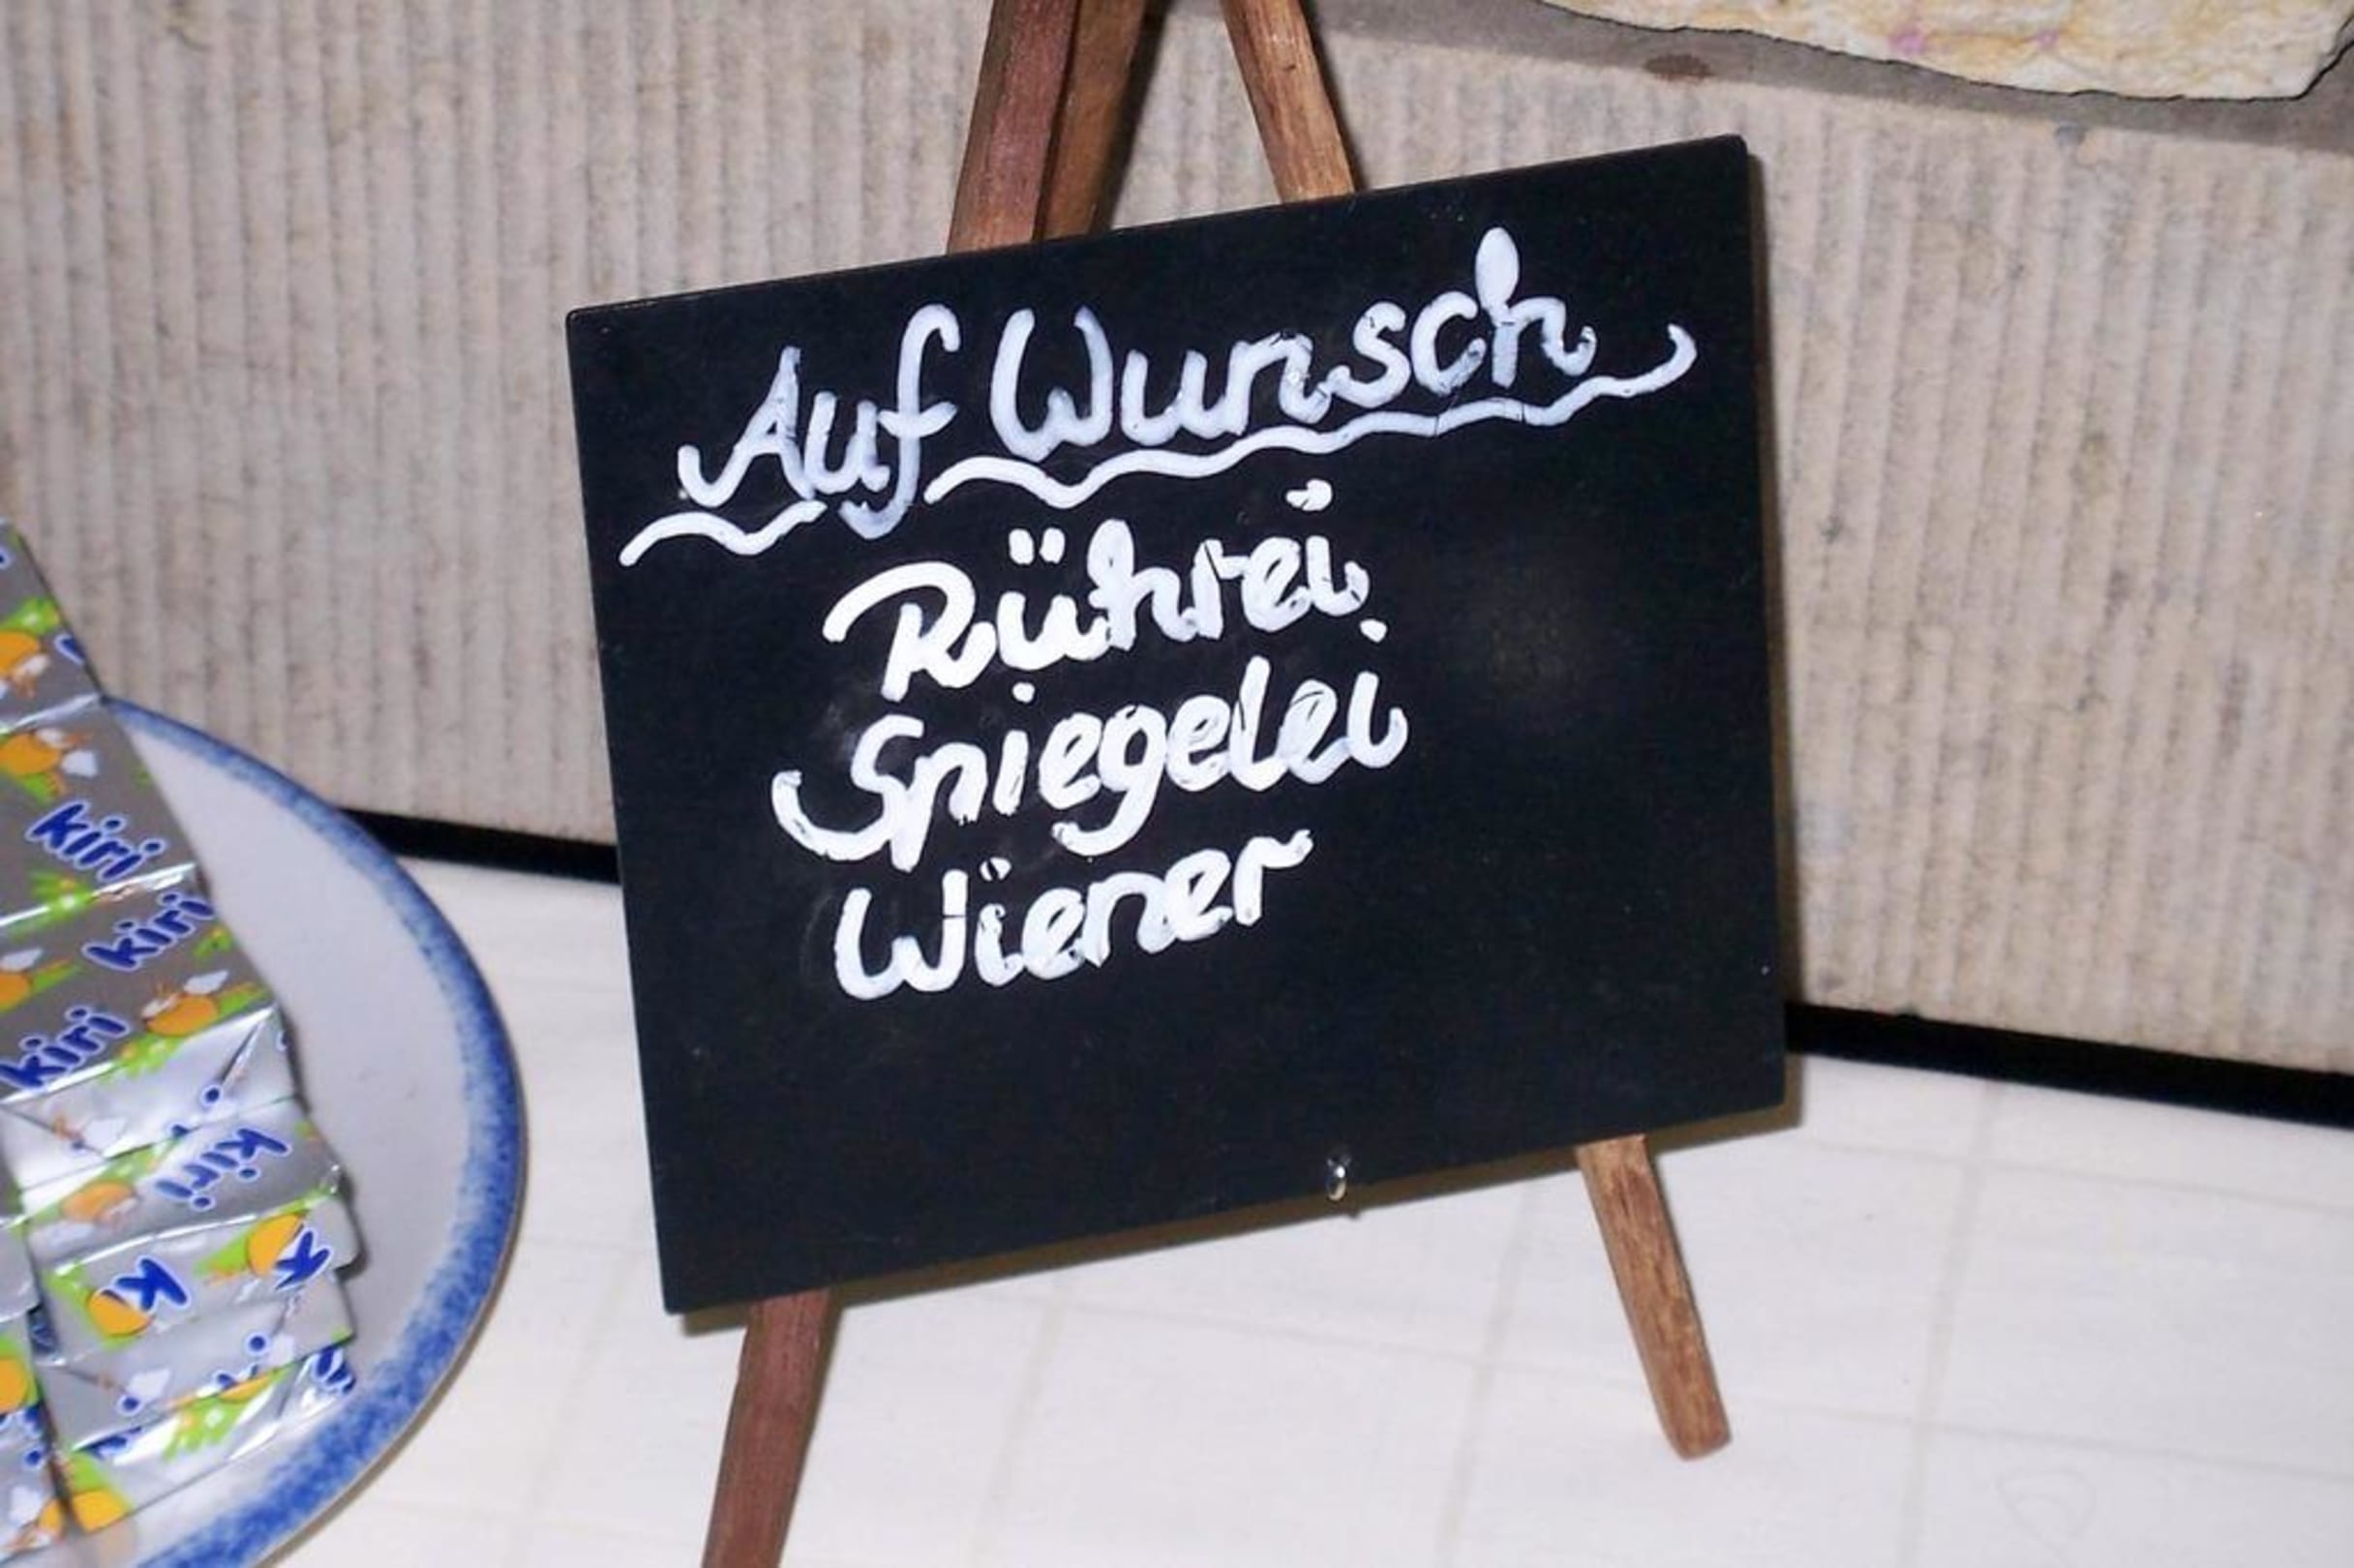 Auf Wunsch
Rührei
Spiegelei
Wiener
kiri
kiri
kiri
kiri